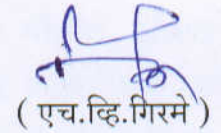 ( एच.व्हि.गिरमे )